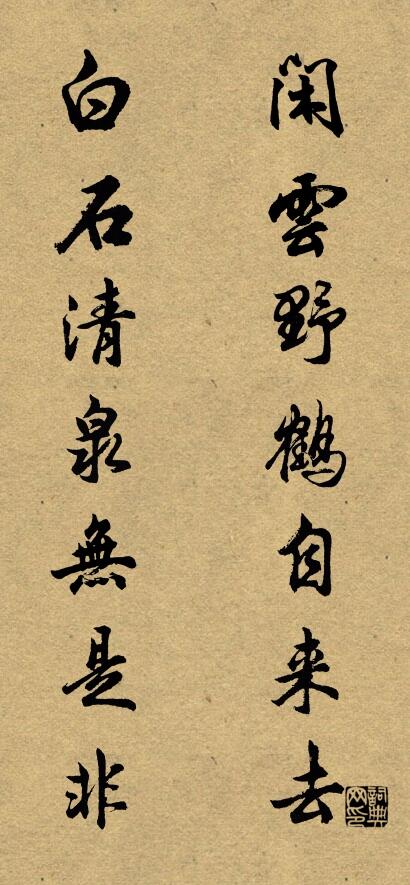 闲雲野鶴自来去
白石清泉無是非
詞典网印